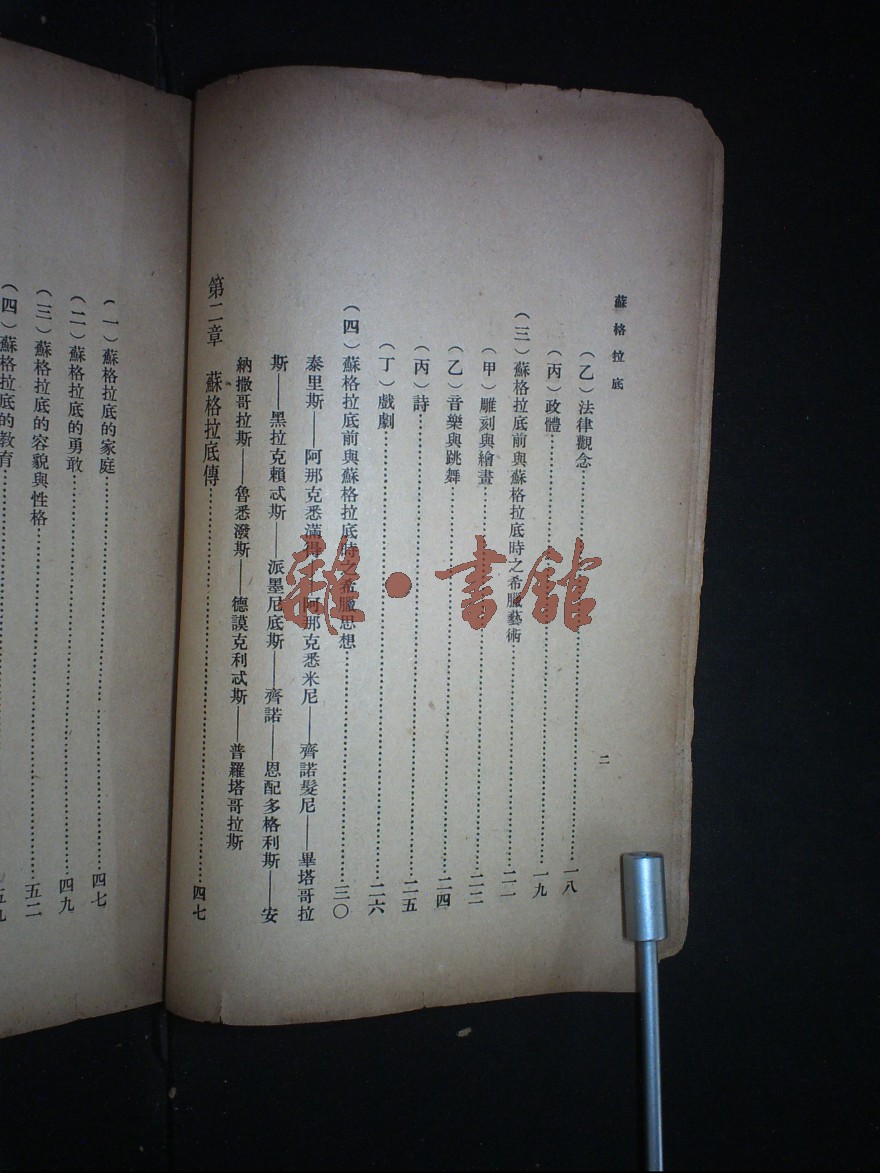 蘇格拉底
二
（乙）法律觀念……一八
（丙）政體……一九
（三）蘇格拉底前與蘇格拉底時之希臘藝術……二一
（甲）雕刻與繪畫……二二
（乙）音樂與跳舞……二四
（丙）詩……二五
（丁）戲劇……二六
（四）蘇格拉底前與蘇格拉底時之希臘思想……三〇
泰里斯——阿那克悉滿得——阿那克悉米尼——齊諾髮尼——畢塔哥拉
斯——黑拉克賴忒斯——派墨尼底斯——齊諾——恩配多格利斯——安
納撒哥拉斯——魯悉潑斯——德謨克利忒斯——普羅塔哥拉斯
第二章　蘇格拉底傳……四七
（一）蘇格拉底的家庭……四七
（二）蘇格拉底的勇敢……四九
（三）蘇格拉底的容貌與性格……五二
（四）蘇格拉底的教育……五九
雜·書館